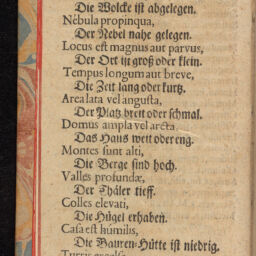 Die Wolcke ist abgelegen.
Nebula propinqua,
Der Nebel nahe gelegen.
Locus est magnus aut parvus,
Der Ort ist groß oder klein.
Tempus longum aut breve,
Die Zeit lang oder kurtz.
Area lata vel angusta,
Der Platz breit oder schmal.
Domus ampla vel arcta
Das Haus weit oder eng.
Montes sunt alti,
Die Berge sind hoch.
Valles profundæ,
Der Thäler tieff.
Colles elevati,
Die Hügel erhaben.
Casa est húmilis,
Die Bauren-Hütte ist niedrig.